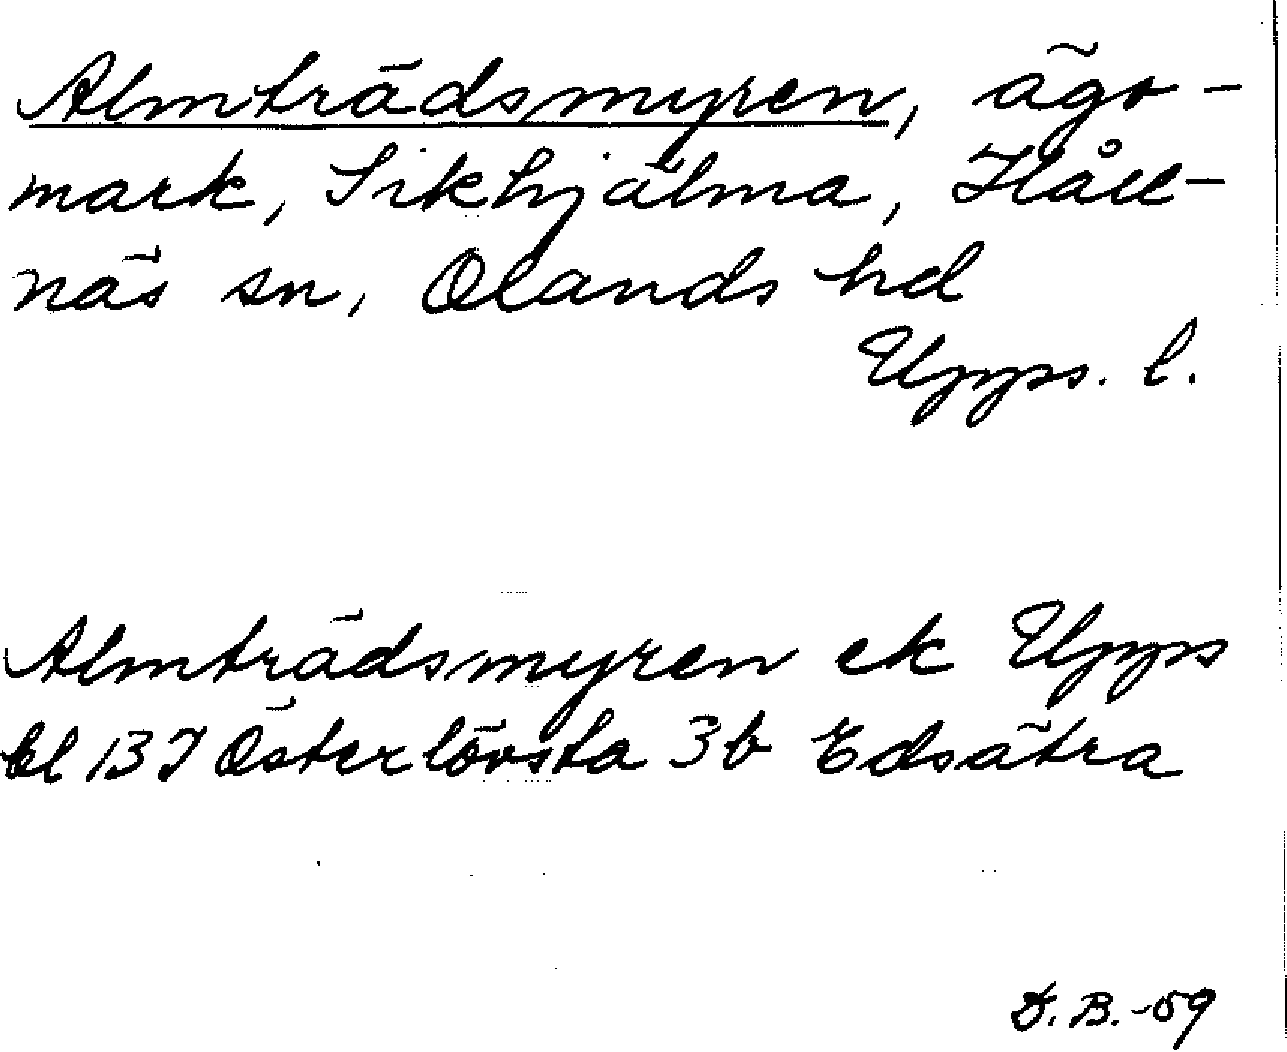 Almträdsmyren, ägo-
mark, Sikhjälma, Håll-
näs sn, Olands hd
Upps. l.
Almträdsmyren ek Upps
bl 13I Österlövsta 3b Edsätra
D. B. -59